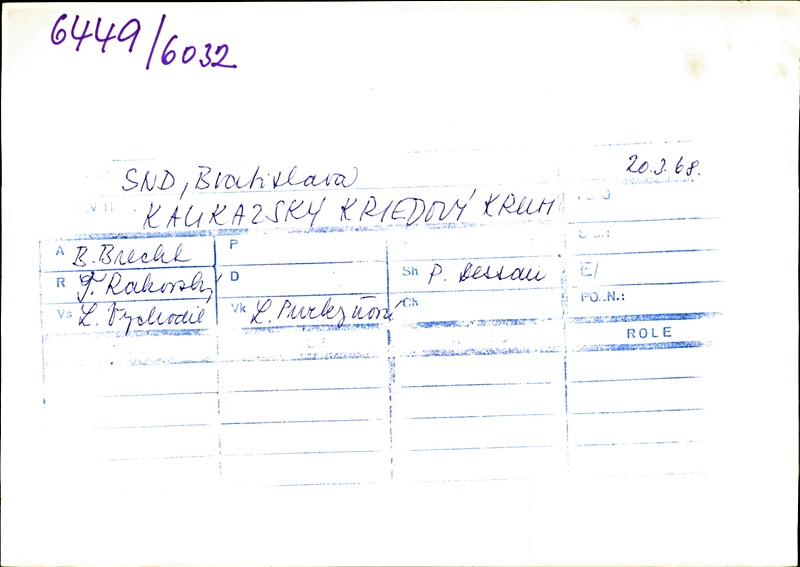 6449/6032
SND, Bratislava
20.3.68.
KAUKAZSKÝ KRIEDOVÝ KRUH
A B. Brecht P
R T. Rakovský D Sh P. Dessau E/
Vs L. Vychodil Vk L. Purkyňová Ch PO..N.:
ROLE